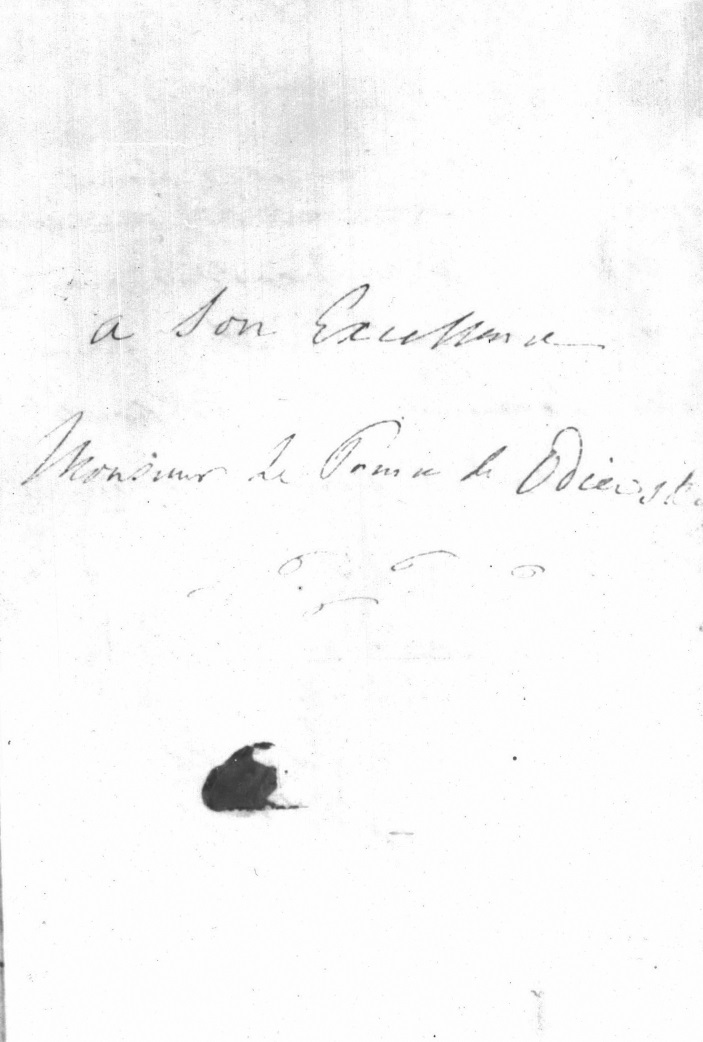 a Son Excellence
Monsieur Le Prince de Odiewsky